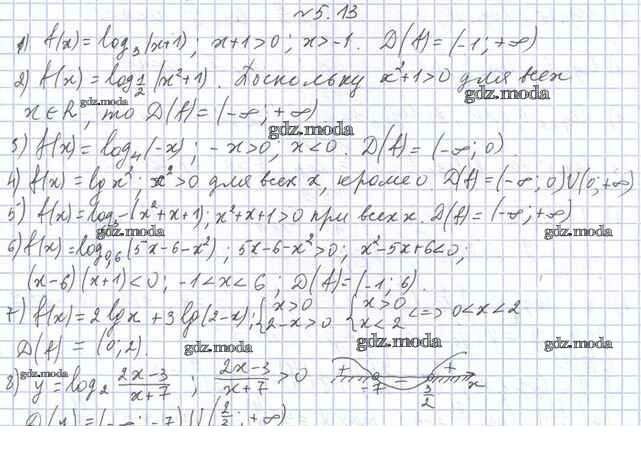 №5.13
1) f(x) = log₃(x+1); x+1>0; x>-1. D(f) = (-1; +∞)
2) f(x) = log_{1/2}(x²+1). Поскольку x²+1>0 для всех
x∈R, то D(f) = (-∞; +∞)
3) f(x) = log₄(-x); -x>0; x<0. D(f) = (-∞; 0)
4) f(x) = lg x²; x²>0 для всех x, кроме 0 D(f) = (-∞; 0)U(0; +∞)
5) f(x) = log (x²+x+1); x²+x+1>0 при всех x. D(f) = (-∞; +∞)
6) f(x) = log_{0,6}(5x-6-x²); 5x-6-x²>0; x²-5x+6<0;
(x-6)(x+1)<0; -1<x<6; D(f) = (-1; 6).
7) f(x) = 2lg x + 3lg(2-x); { x>0 2-x>0 { x>0 x<2 <=> 0<x<2
D(f) = (0; 2)
8) y = log₂ (2x-3)/(x+7); (2x-3)/(x+7) > 0 + -7 - 3/2 + x
D(x) = (-∞; -7)U( ; +∞)
gdz.moda
gdz.moda
gdz.moda
gdz.moda
gdz.moda
gdz.moda
gdz.moda
gdz.moda
gdz.moda
gdz.moda